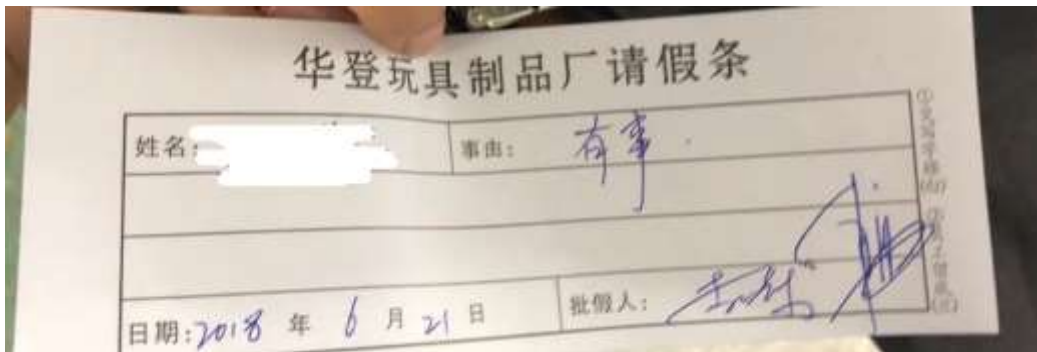 华登玩具制品厂请假条
姓名: 事由: 有事.
日期:2018 年 6 月 21 日 批假人: